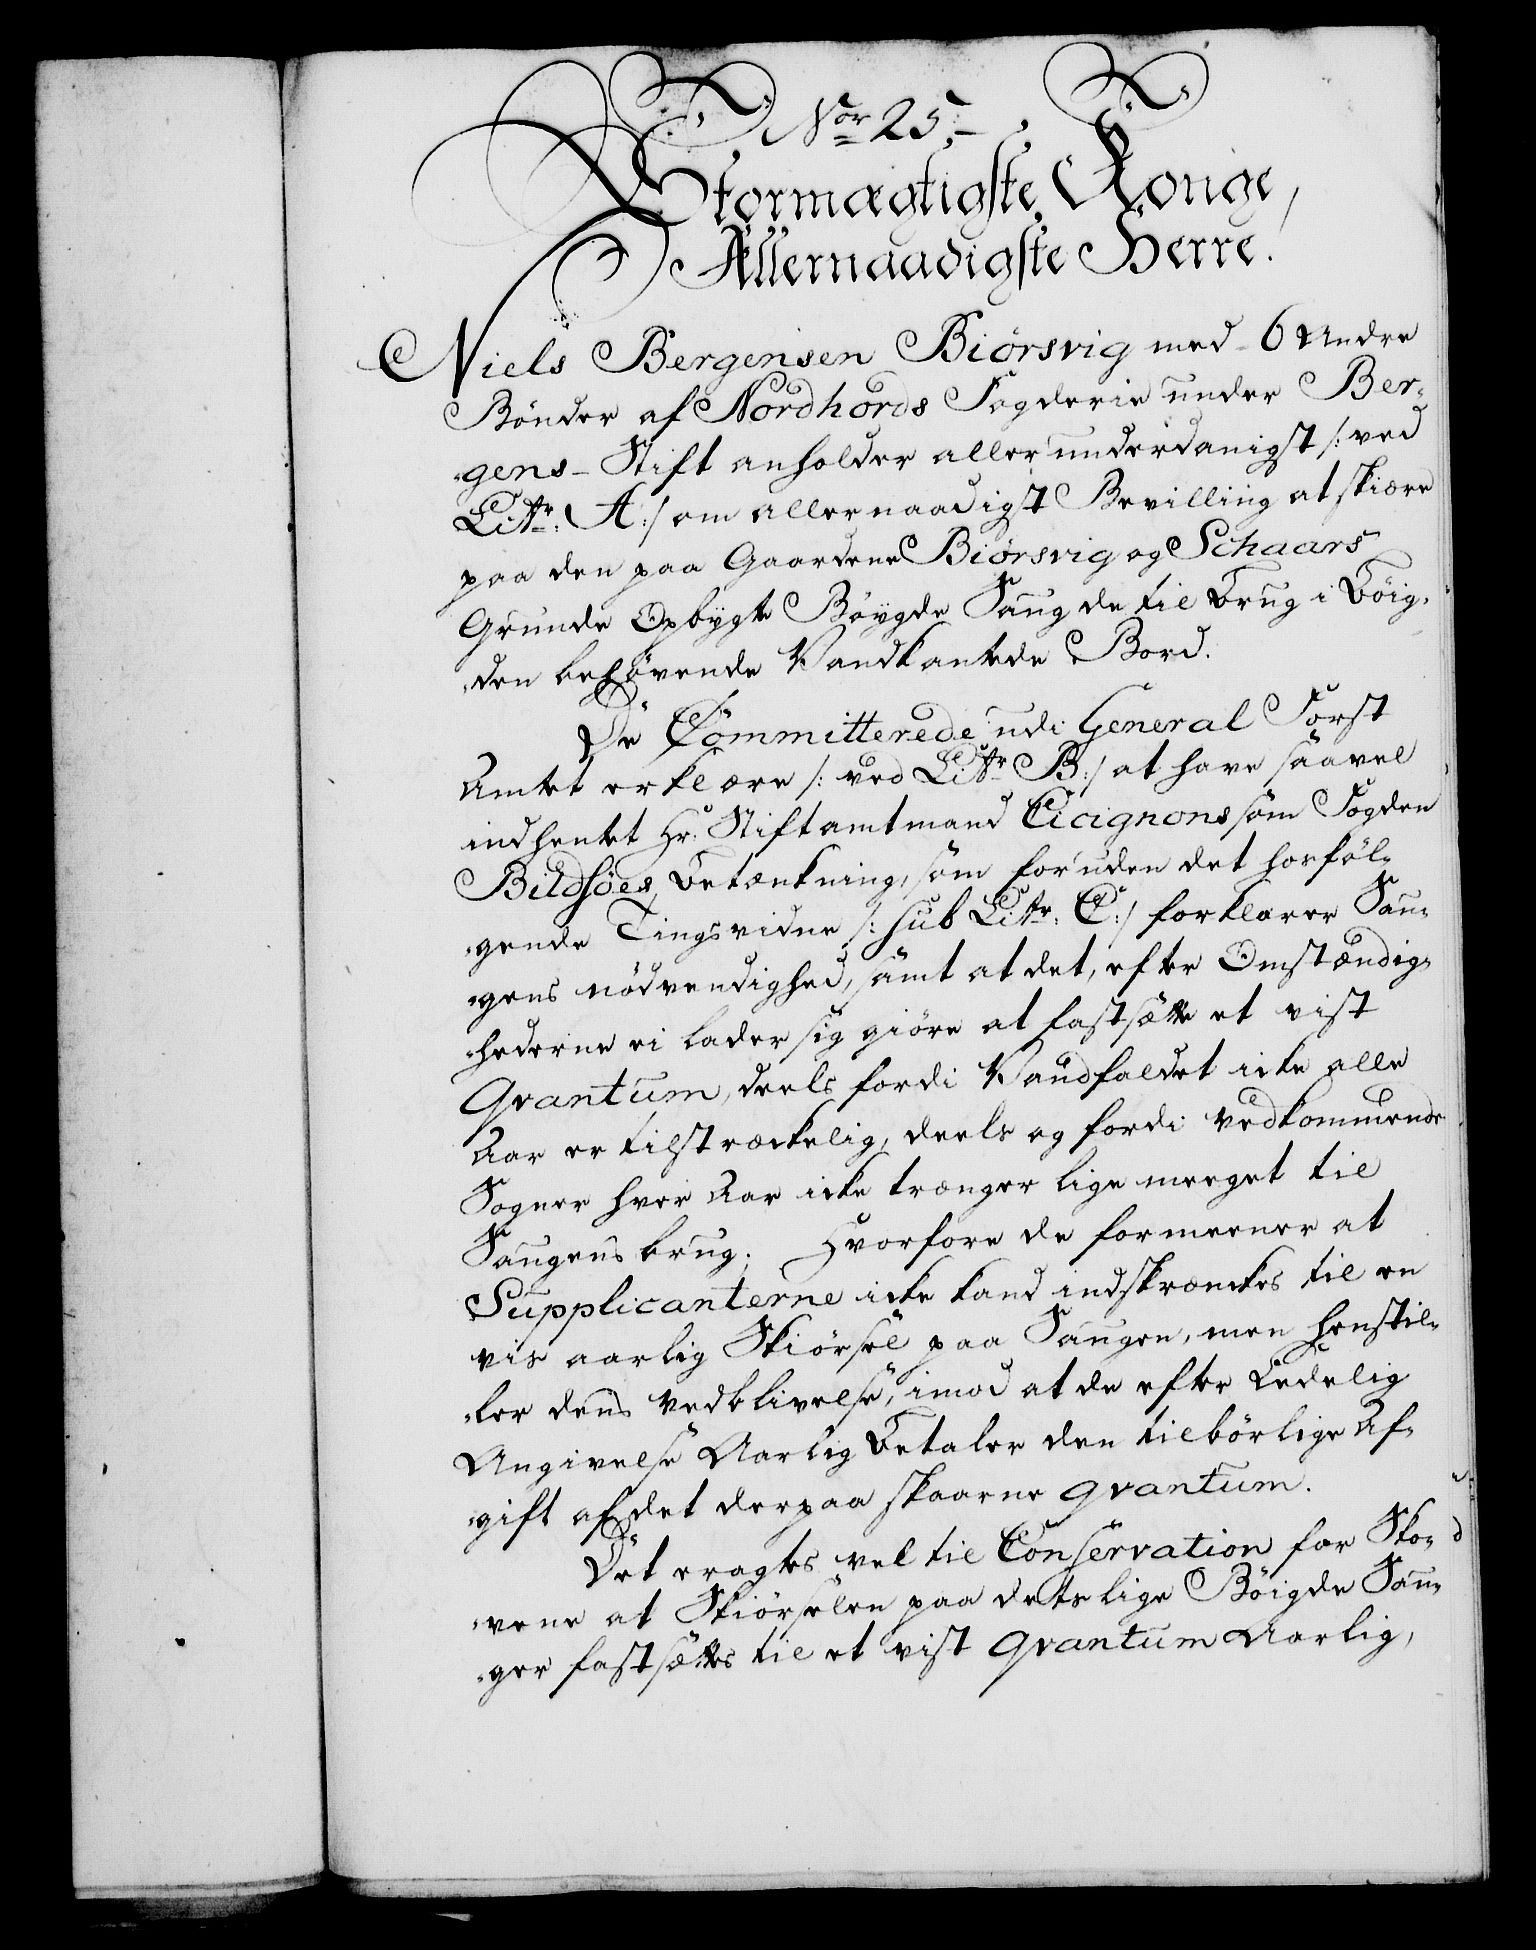 Nor 25.
Stormægtigste Konge,
Allernaadigste Herre.
Niels Bergensen Biørsvig med 6 Andre
Bønder af Nordhords Fogderie under Ber-
gens Stift anholder allerunderdanigst /: ved
Littr: A :/ om allernaadigst Bevilling at skiære
paa den paa Gaardene Biørsvig og Schaars
Grunde Opbygte Bøygde Saug de til Brug i Bøig-
den behøvende Vandkantede Bord.
De Committerede udi General Forst
Amtet erklære /: ved Littr B :/ at have saavel
indhentet Hr. Stiftamtmand Cicignons som Fogden
Bildsøes Betænkning, som foruden det hosføl-
gende Tingsvidne /: sub Littr. C :/ forklarer Sau-
gens nødvendighed, samt at det, efter Omstændig-
hederne ei lader sig giøre at fastsætte et vist
Qvantum, deels fordi Vandfaldet icke alle
Aar er tilstræckelig, deels og fordi vedkommende
Sogner hver Aar icke trænger lige meeget til
Saugens brug. Hvorfore de formeener at
Supplicanterne icke kand indskrænckes til en
vis aarlig Skiørsel paa Saugen, men henstil-
ler dens vedblivelse, imod at de efter Eedelig
Angivelse Aarlig Betaler den tilbørlige Af-
gift af det derpaa skaarne qvantum.
Det eragtes vel til Conservation for Sko-
vene at Skiørselen paa detslige Bøigde Sau-
ger fastsættes til et vist qvantum Aarlig,